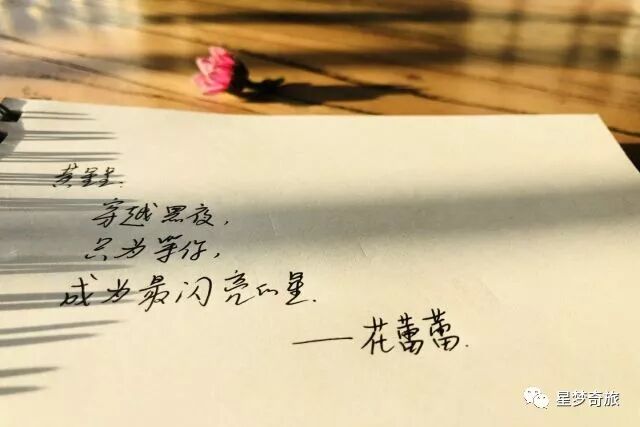 黄星星.
穿越黑夜,
只为等你,
成为最闪亮的星.
——花蕾蕾.
星梦奇旅